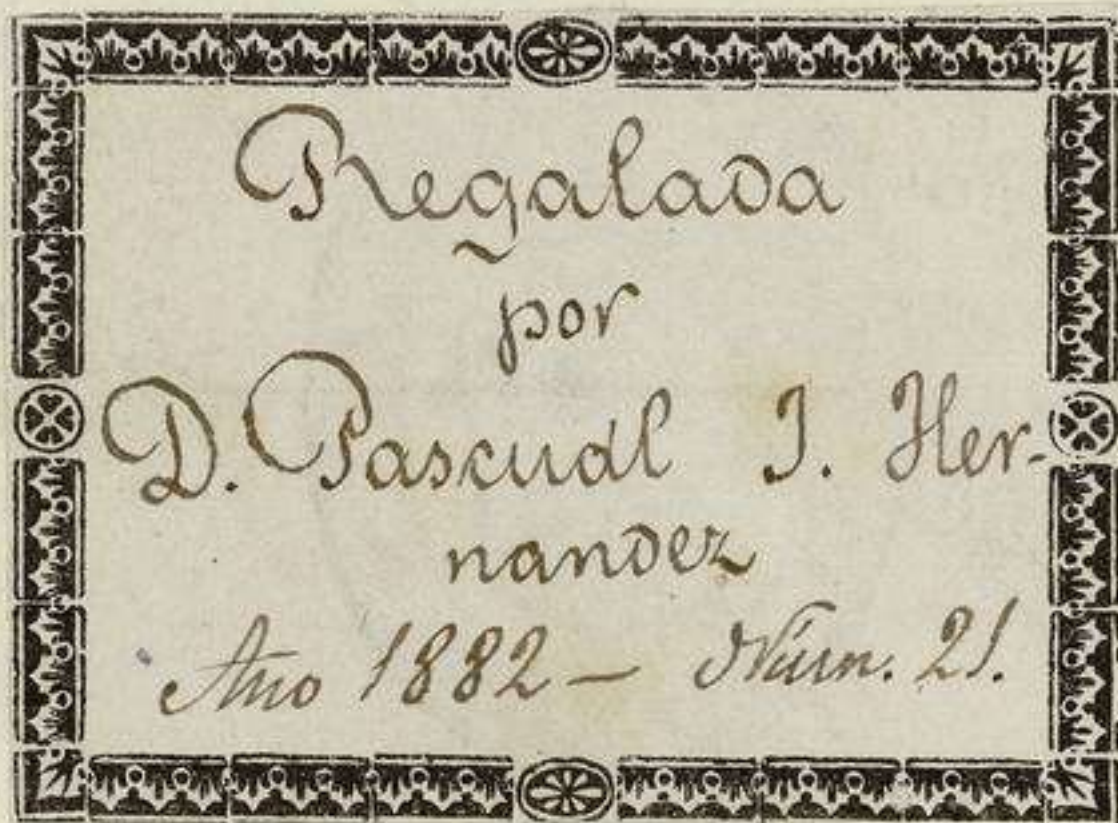 Regalada
por
D. Pascual I. Her-
nandez
Año 1882 — Núm. 21.